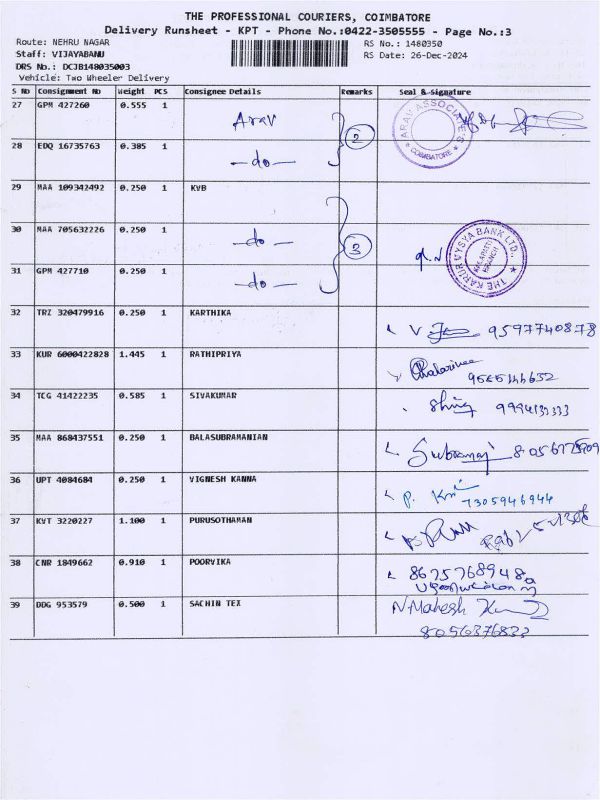 THE PROFESSIONAL COURIERS, COIMBATORE
Delivery Runsheet - KPT - Phone No.:0422-3505555 - Page No.:3
Route: NEHRU NAGAR RS No.: 1480350
Staff: VIJAYABANU RS Date: 26-Dec-2024
DRS No.: DCJB148035003
Vehicle: Two Wheeler Delivery
S No Consignment No Weight PCS Consignee Details Remarks Seal & Signature
27 GPM 427260 0.555 1 Arav ARAV ASSOCIATE'S COIMBATORE
2
28 EDQ 16735763 0.385 1 -do-
29 MAA 109342492 0.250 1 KVB
30 MAA 705632226 0.250 1 -do- 3 THE KARUR VYSYA BANK LTD.,
31 GPM 427710 0.250 1 -do-
32 TRZ 320479916 0.250 1 KARTHIKA 9597740878
33 KUR 6000422828 1.445 1 RATHIPRIYA
34 TCG 41422235 0.585 1 SIVAKUMAR
35 MAA 868437551 0.250 1 BALASUBRAMANIAN
36 UPT 4084684 0.250 1 VIGNESH KANNA 7305946944
37 KVT 3220227 1.100 1 PURUSOTHAMAN
38 CNR 1849662 0.910 1 POORVIKA
39 DDG 953579 0.500 1 SACHIN TEX N. Mahesh
8056376832